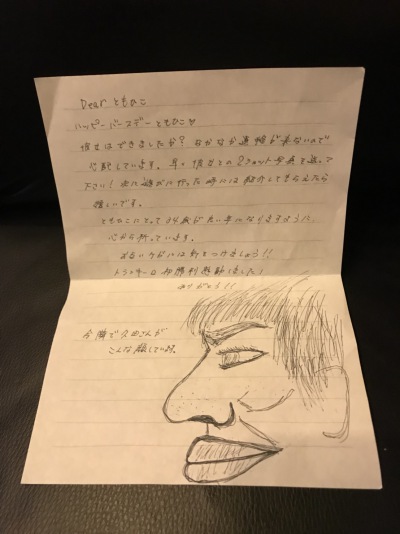 Dear ともひこ
ハッピーバースデーともひこ♡
彼女はできましたか？なかなか連絡が来ないので
心配しています。早く彼女との2ショット写真を送って
下さい！次に遊びに行った時には紹介してもらえたら
嬉しいです。
ともひこにとって34歳が良い年になりますように
心から祈っています。
けがには気をつけましょう！！
初勝利 感動しました！
ありがとう！！
今隣で久田さんが
こんな顔しています。